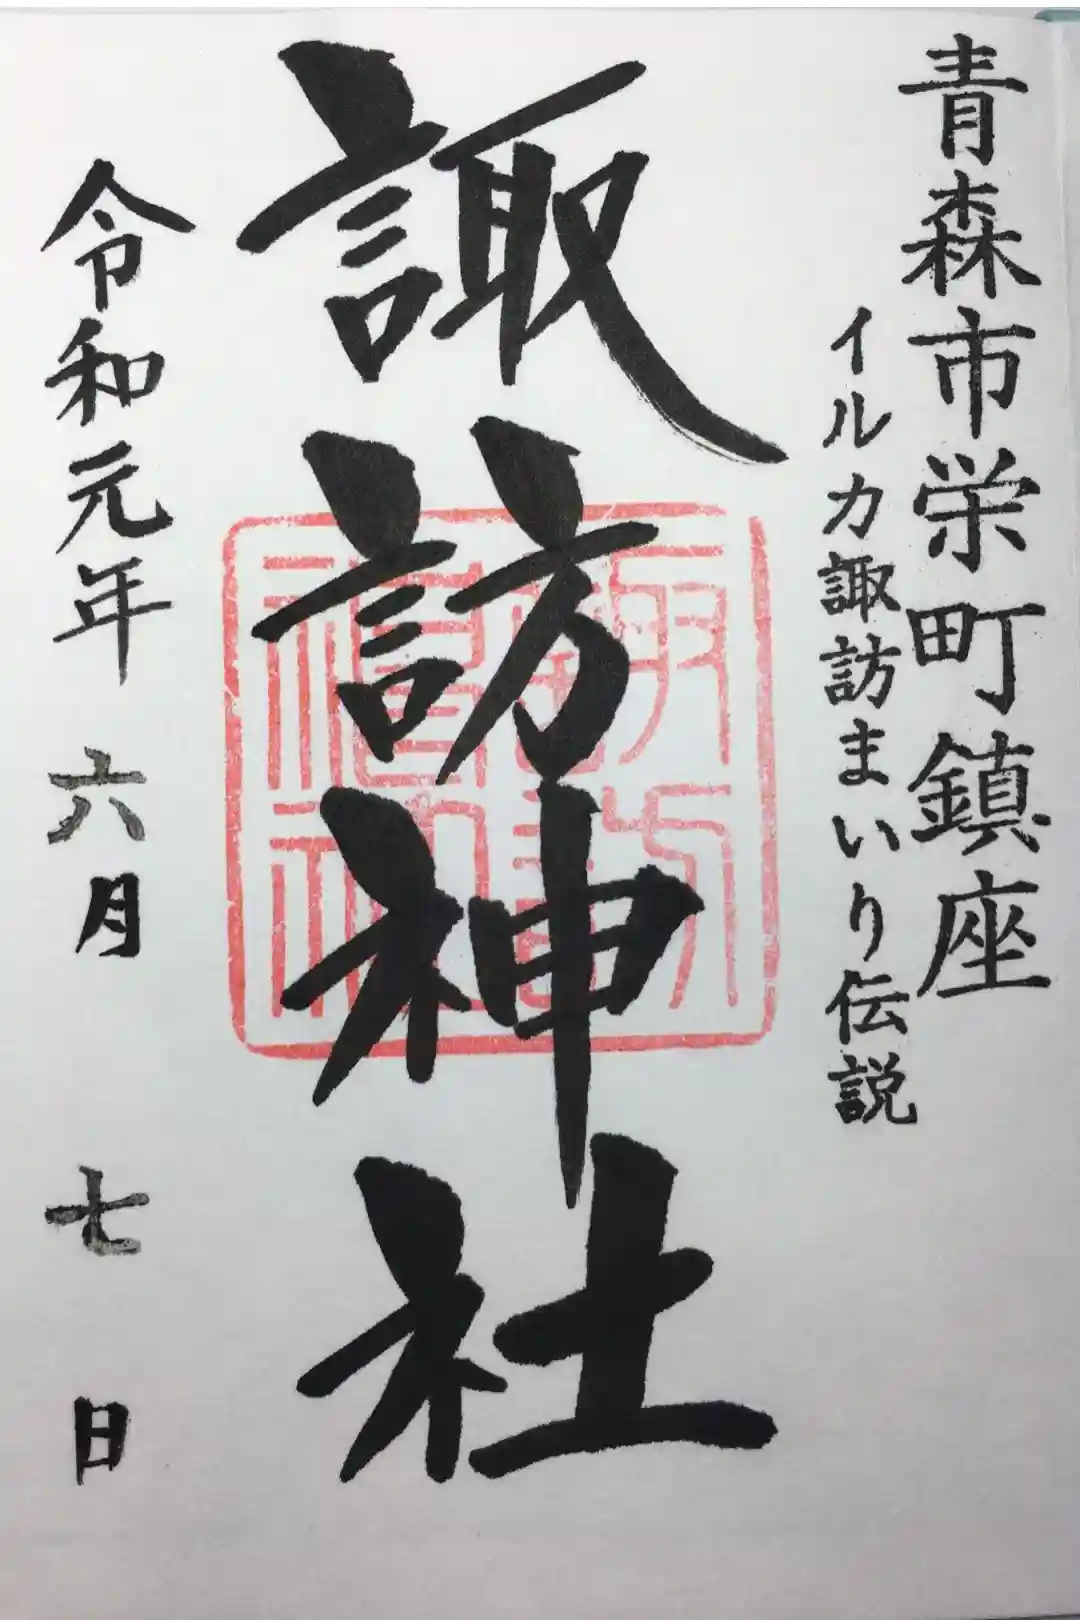 青森市栄町鎮座
イルカ諏訪まいり伝説
諏訪神社
諏訪神社
令和元年 六月 七日